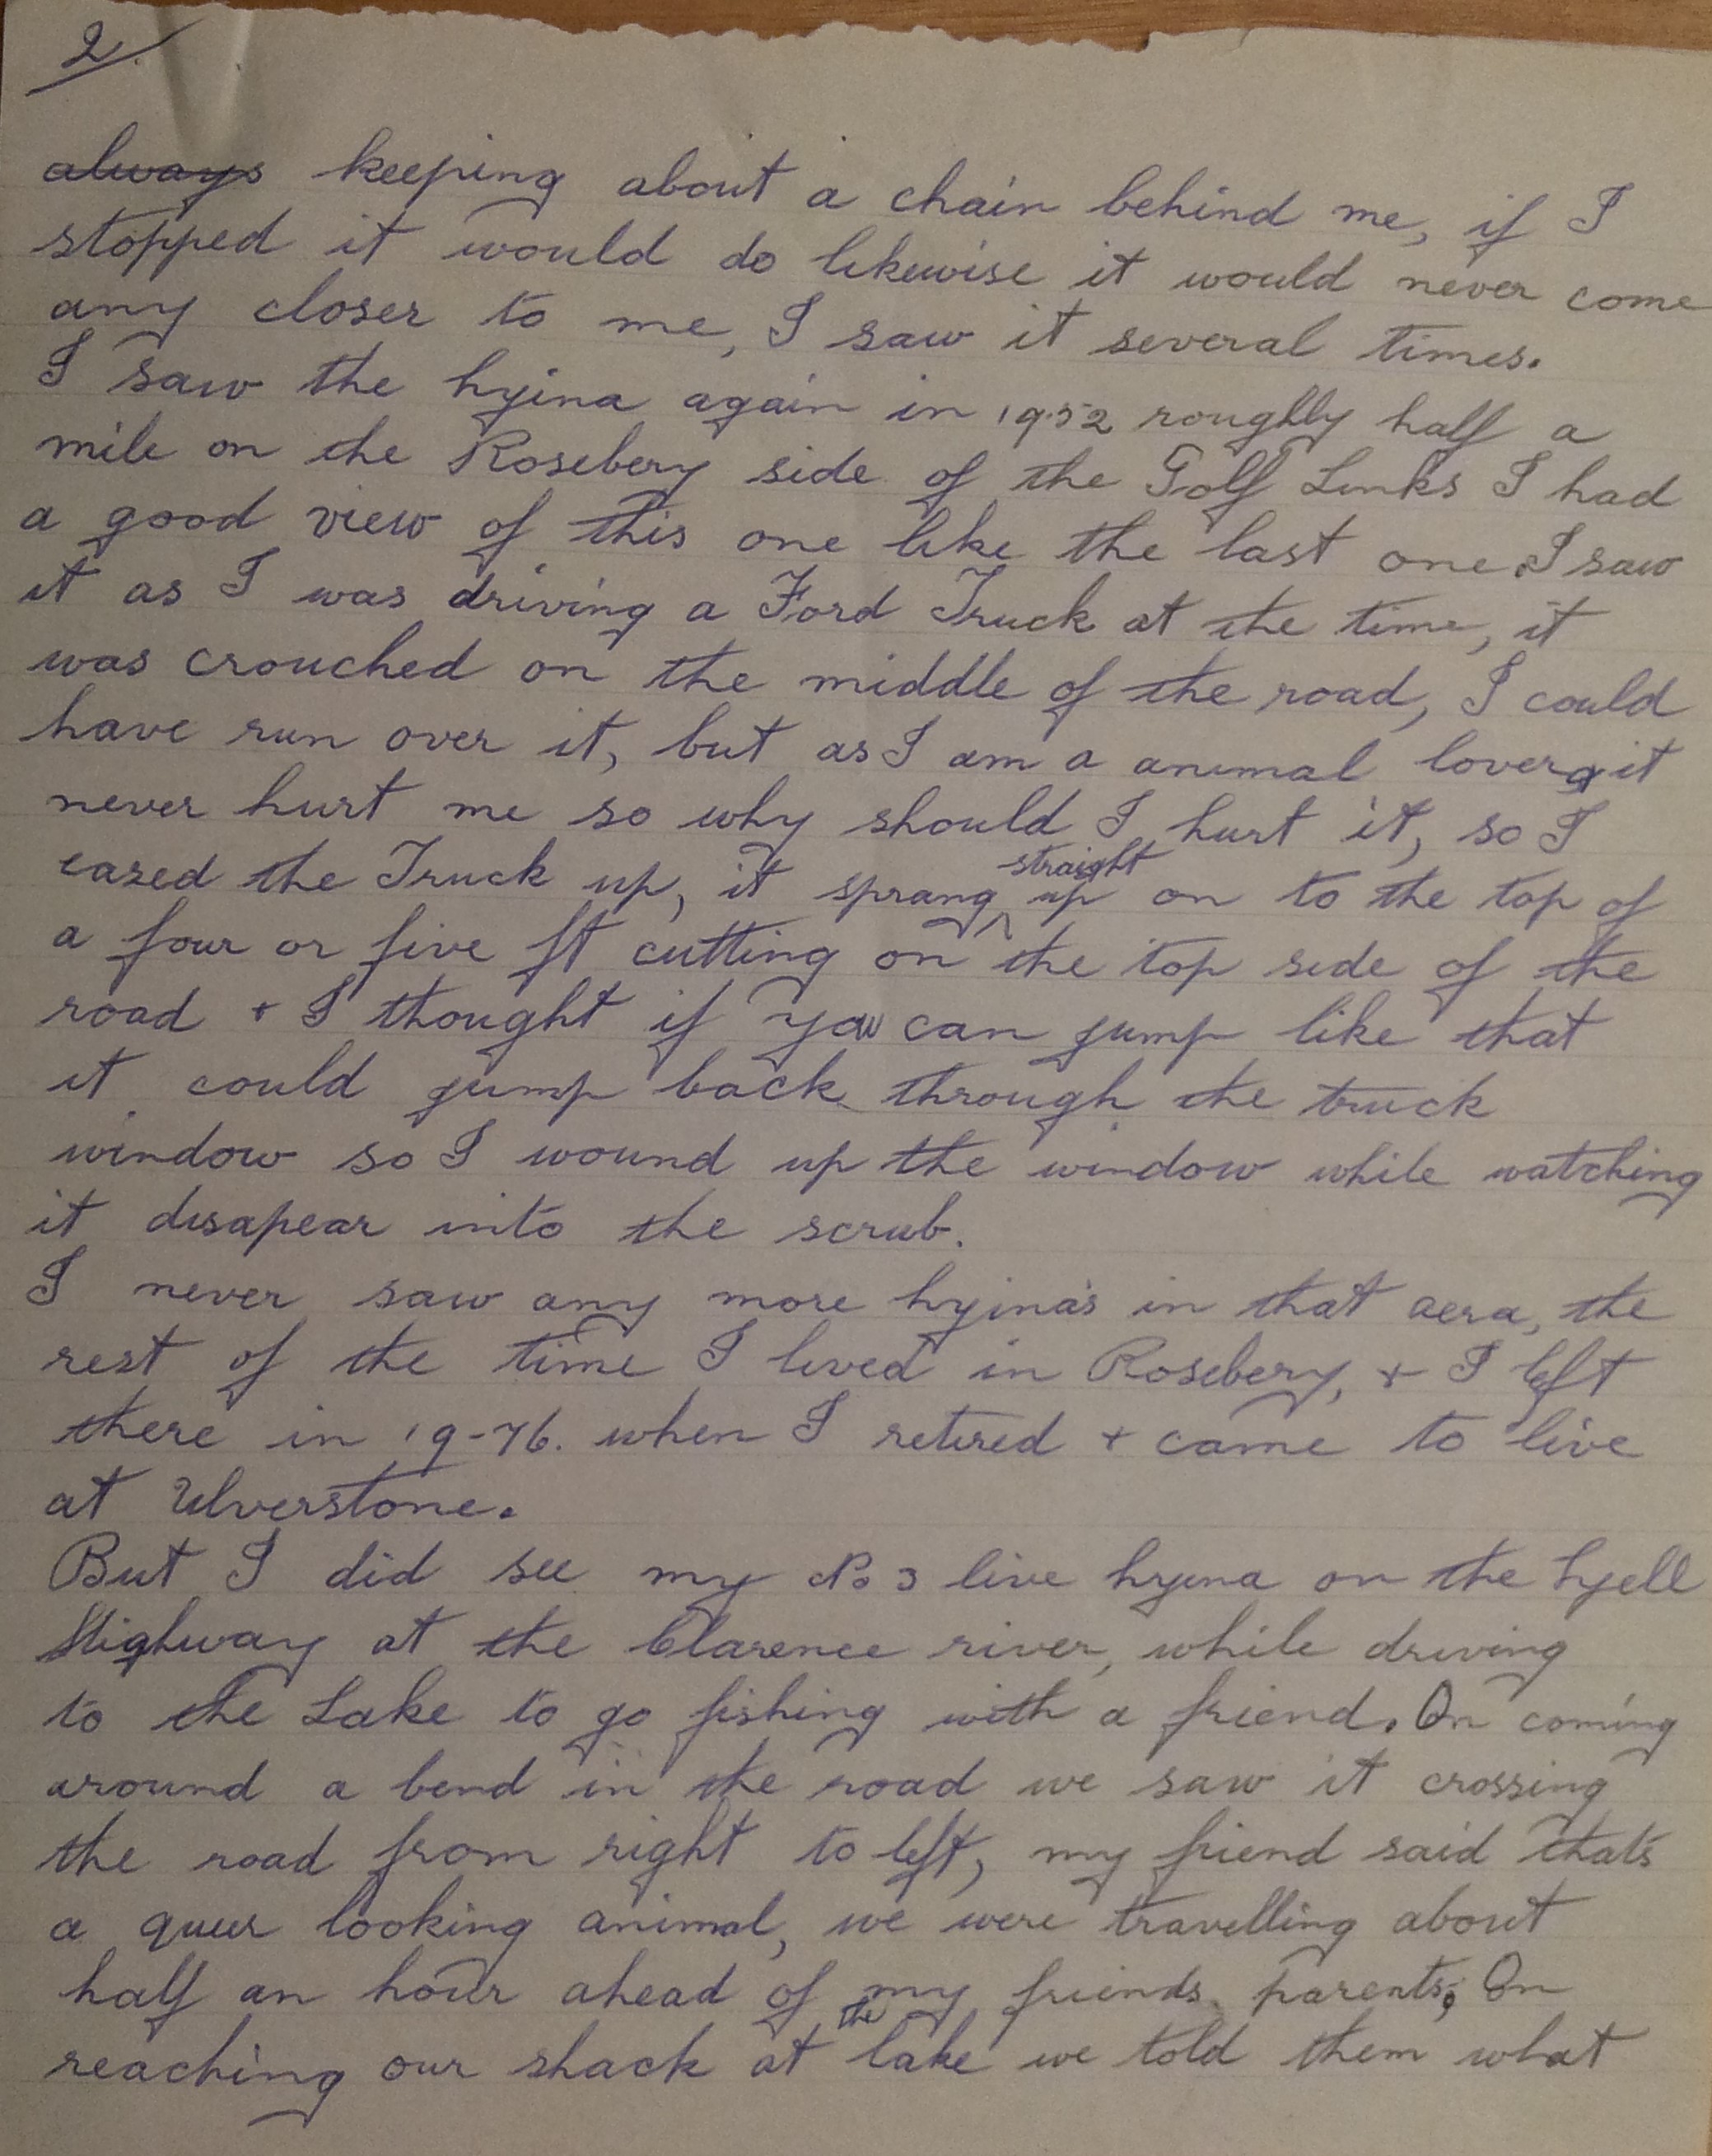 2/.
always keeping about a chain behind me, if I
stopped it would do likewise it would never come
any closer to me, I saw it several times.
I saw the hyina again in 19.52 roughly half a
mile on the Rosebery side of the Golf Links I had
a good view of this one like the last one. I saw
it as I was driving a Ford Truck at the time, it
was crouched on the middle of the road, I could
have run over it, but as I am a animal lover it
never hurt me so why should I hurt it, so I
eased the Truck up, it sprang straight up on to the top of
a four or five ft cutting on the top side of the
road + I thought if you can jump like that
it could jump back through the truck
window so I wound up the window while watching
it disapear into the scrub.
I never saw any more hyina's in that aera, the
rest of the time I lived in Rosebery, + I left
there in 19-76. when I retired + came to live
at Ulverstone.
But I did see my No 3 live hyena on the Lyell
Highway at the Clarence river, while driving
to the Lake to go fishing with a friend. On coming
around a bend in the road we saw it crossing
the road from right to left, my friend said that's
a queer looking animal, we were travelling about
half an hour ahead of my friends parents, On
reaching our shack at the lake we told them what